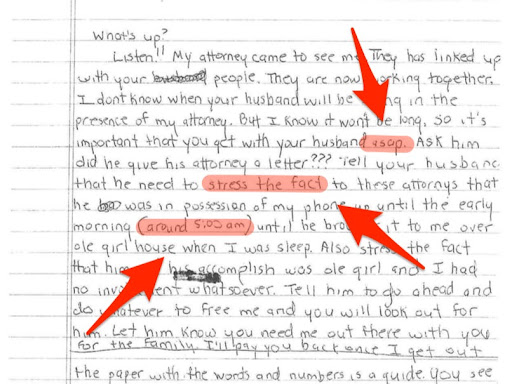 What's up?
Listen!! My attorney came to see me They has linked up
with your people. They are now working together.
I dont know when your husband will be in the
presence of my attorney. But I know it wont be long, so it's
important that you get with your husband asap. Ask him
did he give his attorney a letter??? Tell your husband
that he need to stress the fact to these attornys that
he was in possession of my phone until the early
morning (around 5:00 am) until he brought it to me over
ole girl house when I was sleep. Also stress the fact
that him his accomplish was ole girl and I had
no involvement whatsoever. Tell him to go ahead and
do whatever to free me and you will look out for
him. Let him know you need me out there with you
for the family. I'll pay you back once I get out
the paper with the words and numbers is a guide. You see